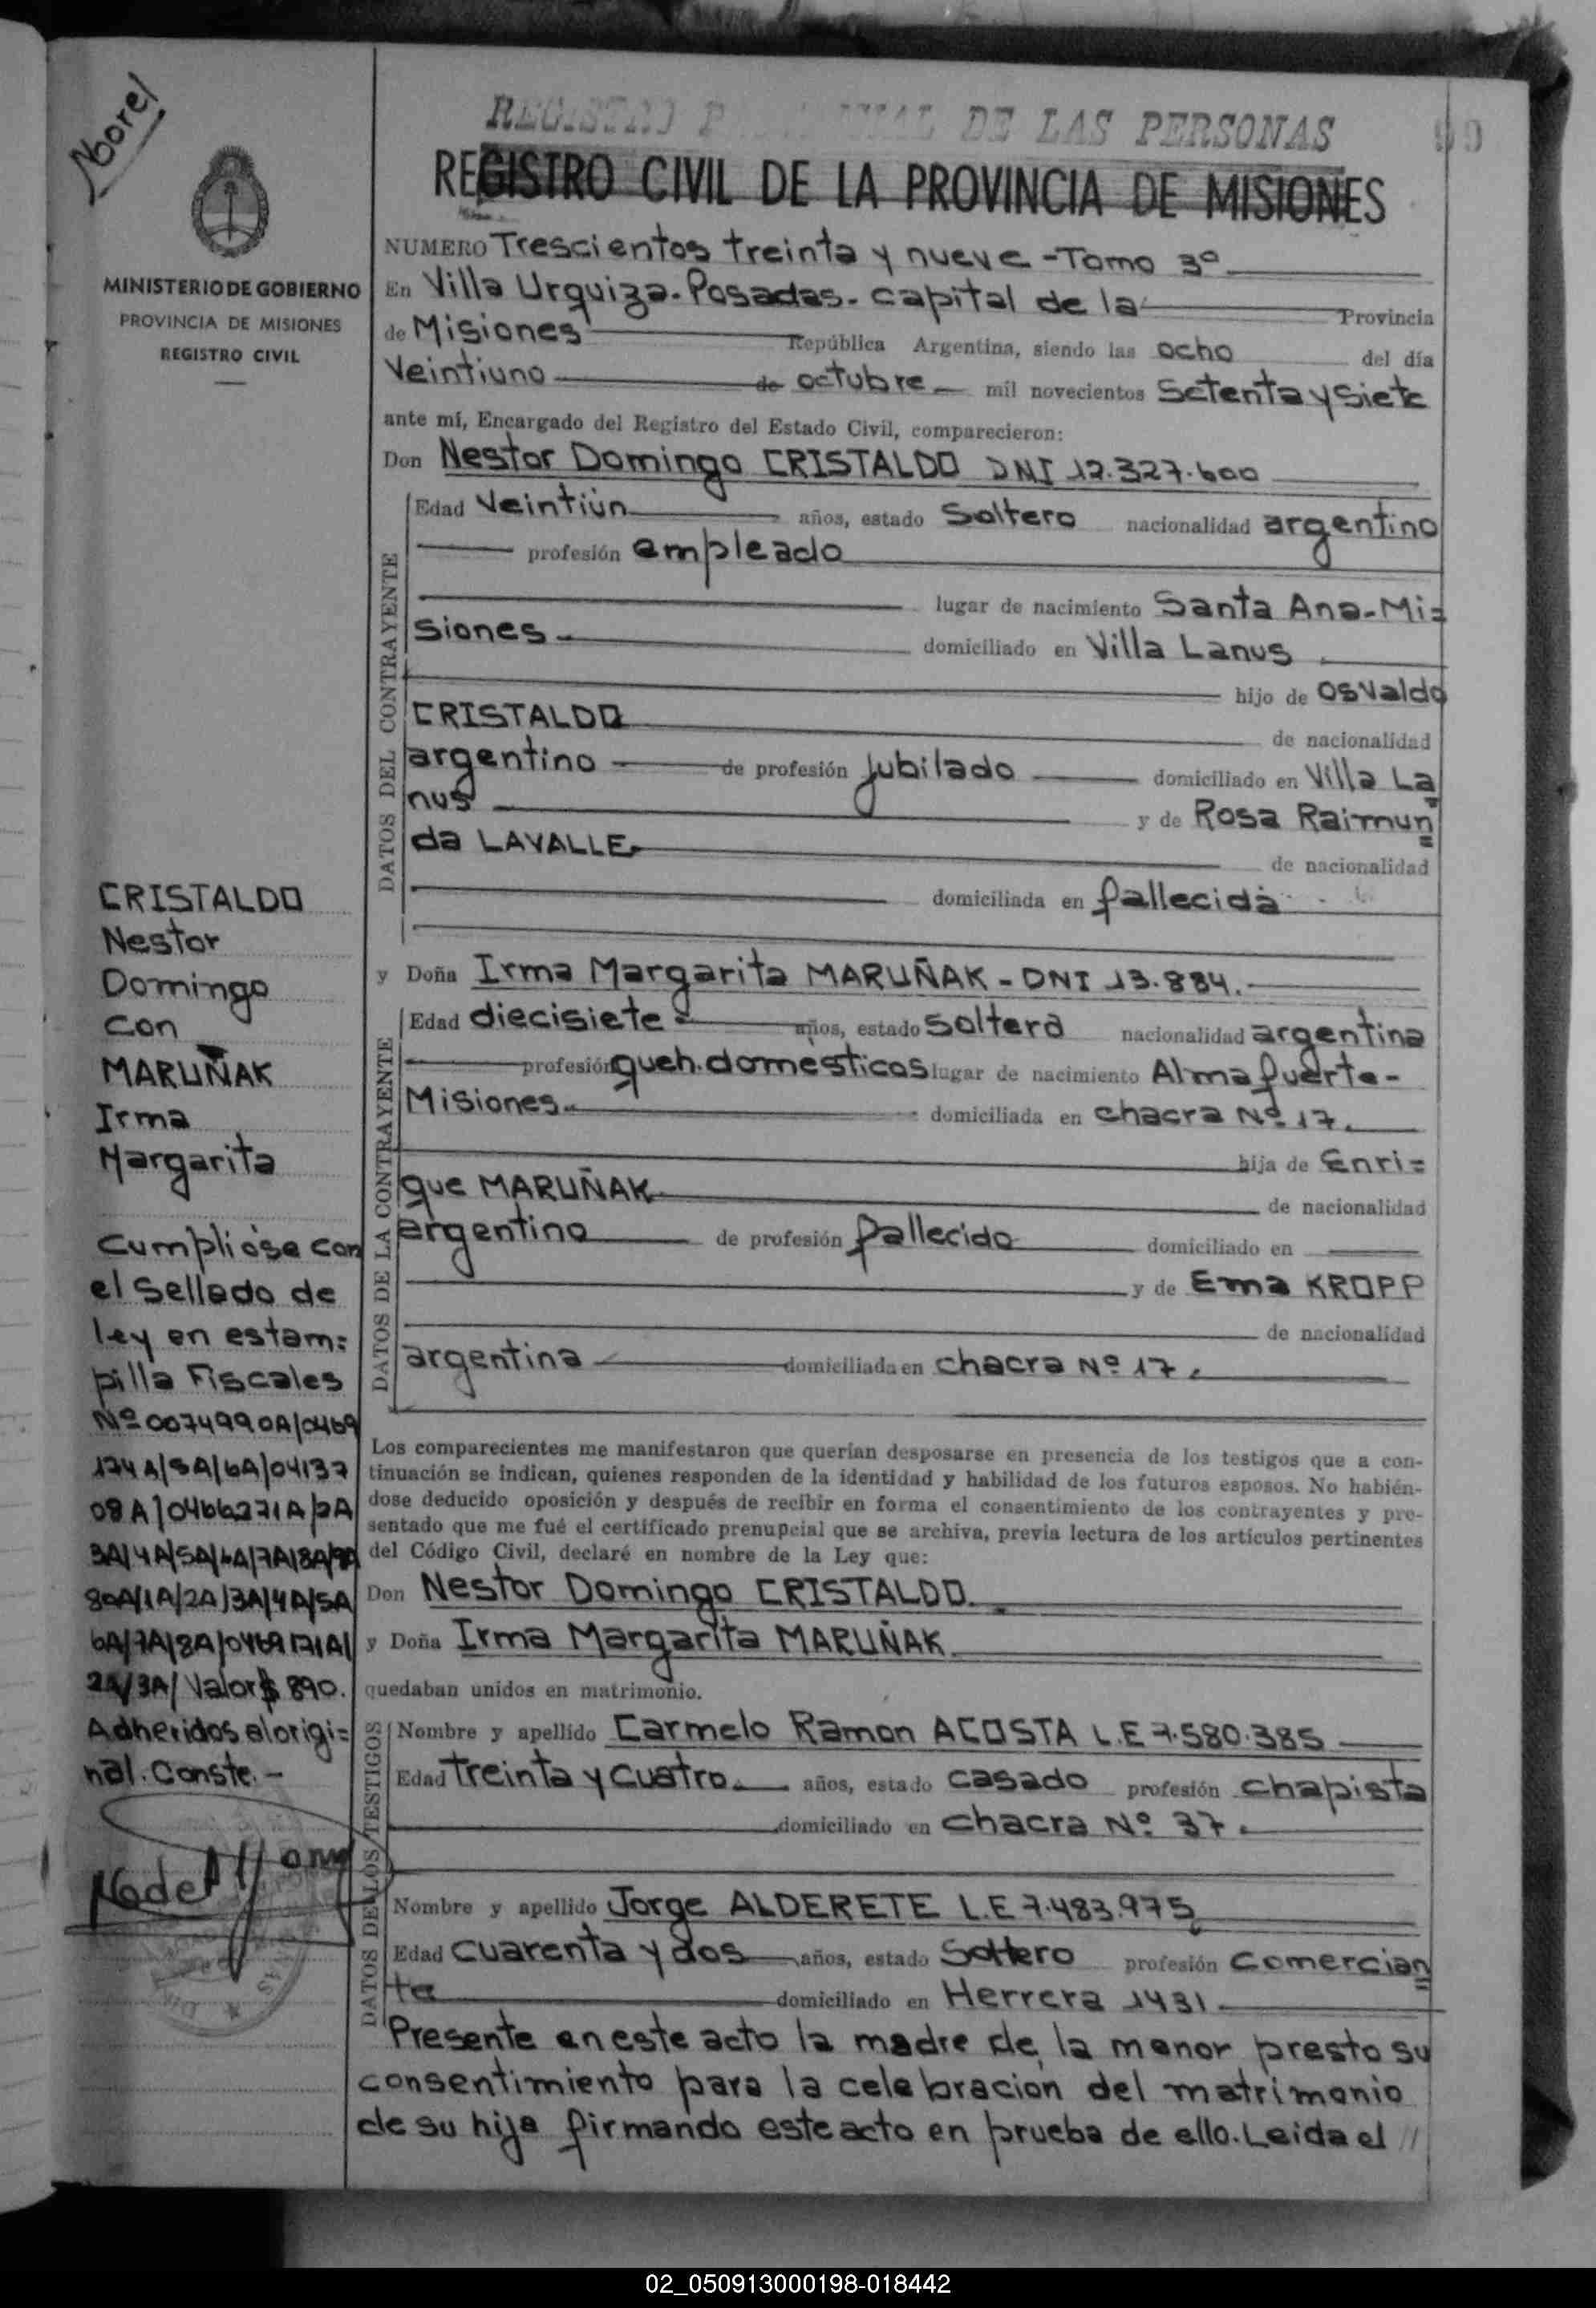 Norel
REGISTRO P DE LAS PERSONAS
90
REGISTRO CIVIL DE LA PROVINCIA DE MISIONES
MINISTERIO DE GOBIERNO
PROVINCIA DE MISIONES
REGISTRO CIVIL
NUMERO Trescientos treinta y nueve - Tomo 3º
En Villa Urquiza. Posadas. capital de la Provincia
de Misiones República Argentina, siendo las ocho del día
Veintiuno de octubre mil novecientos Setenta y siete
ante mí, Encargado del Registro del Estado Civil, comparecieron:
Don Nestor Domingo CRISTALDO DNI 12.327.600
DATOS DEL CONTRAYENTE
Edad Veintiún años, estado Soltero nacionalidad argentino
profesión empleado
lugar de nacimiento Santa Ana-Mi=
siones domiciliado en Villa Lanus
hijo de Osvaldo
CRISTALDO de nacionalidad
argentino de profesión Jubilado domiciliado en Villa La
nus y de Rosa Raimun
da LAVALLE de nacionalidad
domiciliada en fallecida
y Doña Irma Margarita MARUÑAK - DNI 13.884.
DATOS DE LA CONTRAYENTE
Edad diecisiete años, estado Soltera nacionalidad argentina
profesión queh. domésticos lugar de nacimiento Alma fuerte-
Misiones domiciliada en chacra Nº 17.
hija de Enri=
que MARUÑAK de nacionalidad
argentino de profesión fallecido domiciliado en
y de Ema KROPP
de nacionalidad
argentina domiciliada en chacra Nº 17.
CRISTALDO
Nestor
Domingo
con
MARUÑAK
Irma
Margarita
Cumpliose con
el Sellado de
ley en estam=
pilla Fiscales
Nº 0074990A/0469
174A/5A/6A/04137
08A/0466271A/2A
3A/4A/5A/6A/7A/8A/9A
80A/1A/2A/3A/4A/5A
6A/7A/8A/0469171A/
2A/3A/ Valor $ 890.
Adheridos al origi=
nal. Conste.-
Los comparecientes me manifestaron que querían desposarse en presencia de los testigos que a con-
tinuación se indican, quienes responden de la identidad y habilidad de los futuros esposos. No habién-
dose deducido oposición y después de recibir en forma el consentimiento de los contrayentes y pre-
sentado que me fué el certificado prenupcial que se archiva, previa lectura de los artículos pertinentes
del Código Civil, declaré en nombre de la Ley que:
Don Nestor Domingo CRISTALDO.
y Doña Irma Margarita MARUÑAK
quedaban unidos en matrimonio.
DATOS DE LOS TESTIGOS
Nombre y apellido Carmelo Ramon ACOSTA L.E 7.580.385
Edad treinta y cuatro años, estado casado profesión chapista
domiciliado en chacra Nº 37.
Nombre y apellido Jorge ALDERETE L.E 7.483.975
Edad cuarenta y dos años, estado Soltero profesión Comercian
te domiciliado en Herrera 1431.
Presente en este acto la madre de la menor presto su
consentimiento para la celebracion del matrimonio
de su hija firmando este acto en prueba de ello. Leida el //
02_050913000198-018442